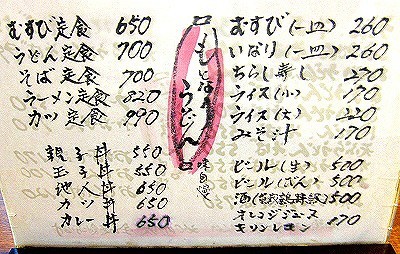 むすび定食 650
うどん定食 700
そば定食 700
ラーメン定食 820
カツ定食 990
親子丼 550
玉子丼 550
他人丼 650
カツ丼 650
カレー丼 650
うどん
味自慢
むすび(一皿) 260
いなり(一皿) 260
ちらし寿し 270
ライス(小) 170
ライス(大) 220
みそ汁 170
ビール(生) 500
ビール(びん) 500
酒 500
オレンジジュース
キリンレモン 170